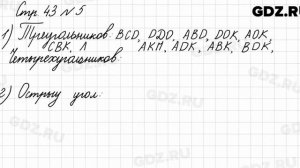 GDZ.RU
Стр. 43 № 5
1) Треугольников BCD, DDO, ABD, DOK, AOK,
CBK, A AKM, ADK, ABK, BOK,
Четырехугольников:
2) Острый угол: